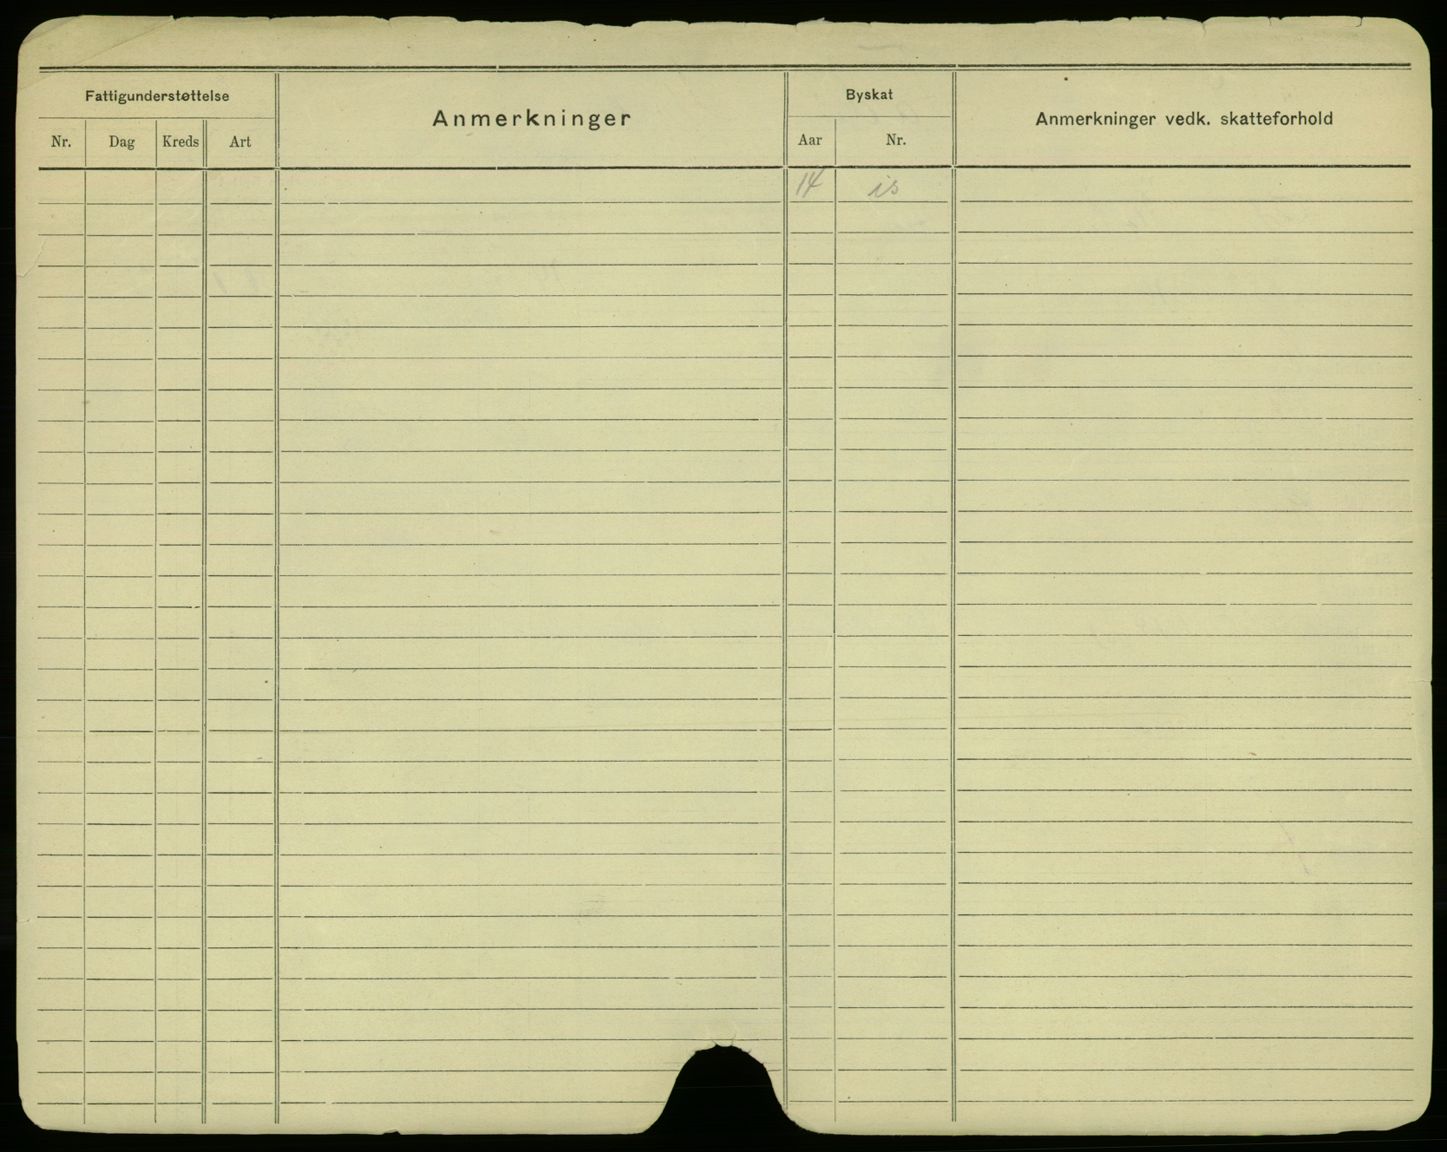 Fattigunderstøttelse
Anmerkninger
Byskat
Anmerkninger vedk. skatteforhold
Nr. Dag Kreds Art
Aar Nr.
14 is